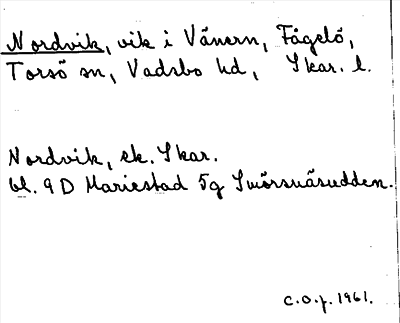 Nordvik, vik i Vänern, Fågelö,
Torsö sn, Vadsbo hd, Skar. l.
Nordvik, ek. Skar.
bl. 9 D Mariestad 5g Smörsnäsudden.
C.O.f. 1961.